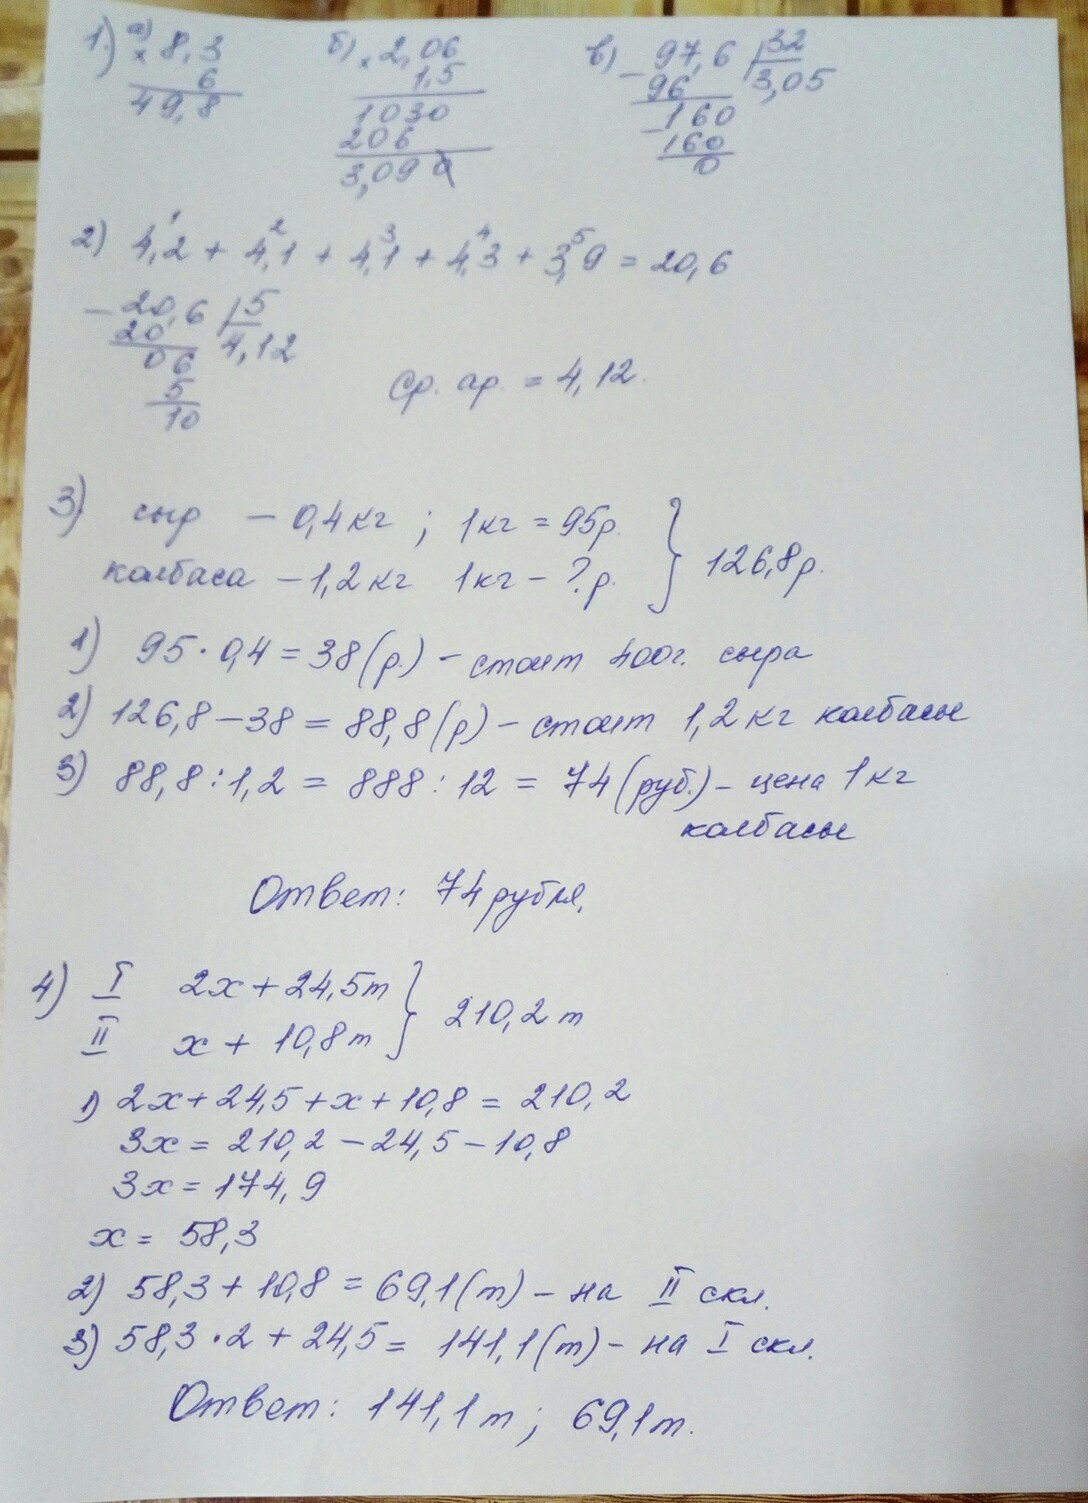 1.) а) × 8,3 б) × 2,06 в) − 97,6 | 32
6 1,5 96 3,05
49,8 1030 − 160
206 160
3,090 0
2) 4,2 + 4,1 + 4,1 + 4,3 + 3,9 = 20,6
1 2 3 4 5
− 20,6 | 5
20 4,12
06
5 Ср. ар. = 4,12.
10
3) сыр – 0,4 кг ; 1 кг = 95 р. } 126,8 р.
колбаса – 1,2 кг 1 кг – ? р.
1) 95 · 0,4 = 38 (р.) – стоит 400 г. сыра
2) 126,8 – 38 = 88,8 (р) – стоит 1,2 кг колбасы
3) 88,8 : 1,2 = 888 : 12 = 74 (руб.) – цена 1 кг
колбасы
Ответ: 74 рубля.
4) I 2х + 24,5 т } 210,2 т
II х + 10,8 т
1) 2х + 24,5 + х + 10,8 = 210,2
3х = 210,2 – 24,5 – 10,8
3х = 174,9
х = 58,3
2) 58,3 + 10,8 = 69,1 (т) – на II скл.
3) 58,3 · 2 + 24,5 = 141,1 (т) – на I скл.
Ответ: 141,1 т ; 69,1 т.